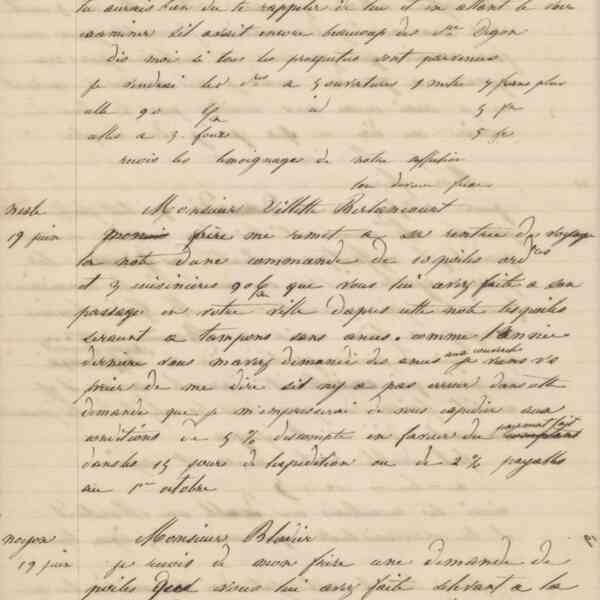 tu aurais bien du te rappeler de lui et en allant le voir
examiner s'il avait encore beaucoup des
dis moi si tous les prospectus sont parvenus
je vendrai les a 5 ouvertures 1 mètre 7 francs plus
elle 90 5 fr
celles a 3 fours 5 fr
reçois les témoignages de notre affection
ton devoué frère
nesle Monsieur Villette Berlancourt
19 juin mon frère me remet a sa rentrée de voyage
la note d'une commande de 10 poêles ord res
et 3 cuisinières 90 c que vous lui avez faite a son
passage en votre ville d'après cette note les poêles
seraient a tampons sans anses. comme l'année
dernière vous m'avez demandé des anses aux couvercles je viens vs
prier de me dire s'il n'y a pas erreur dans cette
demande que je m'empresserai de vous expedier aux
conditions de 5 % d'escompte en faveur du payement fait comptant
dans les 15 jours de l'expedition ou de 2 % payable
au 1er octobre
noyon Monsieur
19 juin je reçois de mon frère une demande de
poêles que vous lui avez faite s'élevant a la